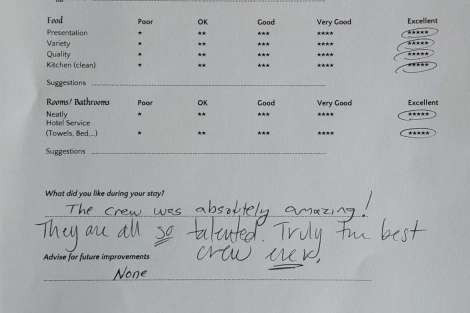 Food Poor OK Good Very Good Excellent
Presentation * ** *** **** *****
Variety * ** *** **** *****
Quality * ** *** **** *****
Kitchen (clean) * ** *** **** *****
Suggestions
Rooms/ Bathrooms Poor OK Good Very Good Excellent
Neatly * ** *** **** *****
Hotel Service
(Towels, Bed,..) * ** *** **** *****
Suggestions
What did you like during your stay?
The crew was absolutely amazing!
They are all so talented. Truly the best
crew ever.
Advise for future improvements
None